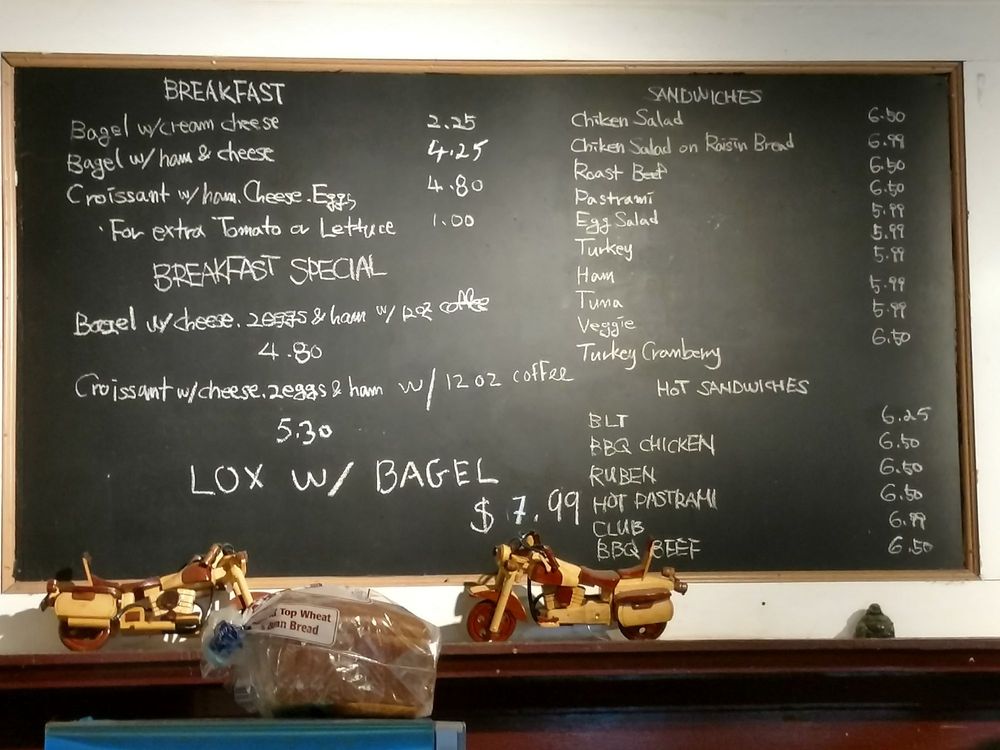 BREAKFAST
Bagel w/cream cheese 2.25
Bagel w/ ham & cheese 4.25
Croissant w/ham.Cheese.Eggs 4.80
· For extra Tomato or Lettuce 1.00
BREAKFAST SPECIAL
Bagel w/cheese.2eggs & ham w/ 12oz coffee
4.80
Croissant w/cheese.2eggs & ham w/ 12 oz coffee
5.30
LOX W/ BAGEL
$ 7.99
SANDWICHES
Chiken Salad 6.50
Chiken Salad on Raisin Bread 6.99
Roast Beef 6.50
Pastrami 6.50
Egg Salad 5.99
Turkey 5.99
Ham 5.99
Tuna 5.99
Veggie 5.99
Turkey Cranberry 6.50
HOT SANDWICHES
BLT 6.25
BBQ CHICKEN 6.50
RUBEN 6.50
HOT PASTRAMI 6.50
CLUB 6.99
BBQ BEEF 6.50
Top Wheat
Bread